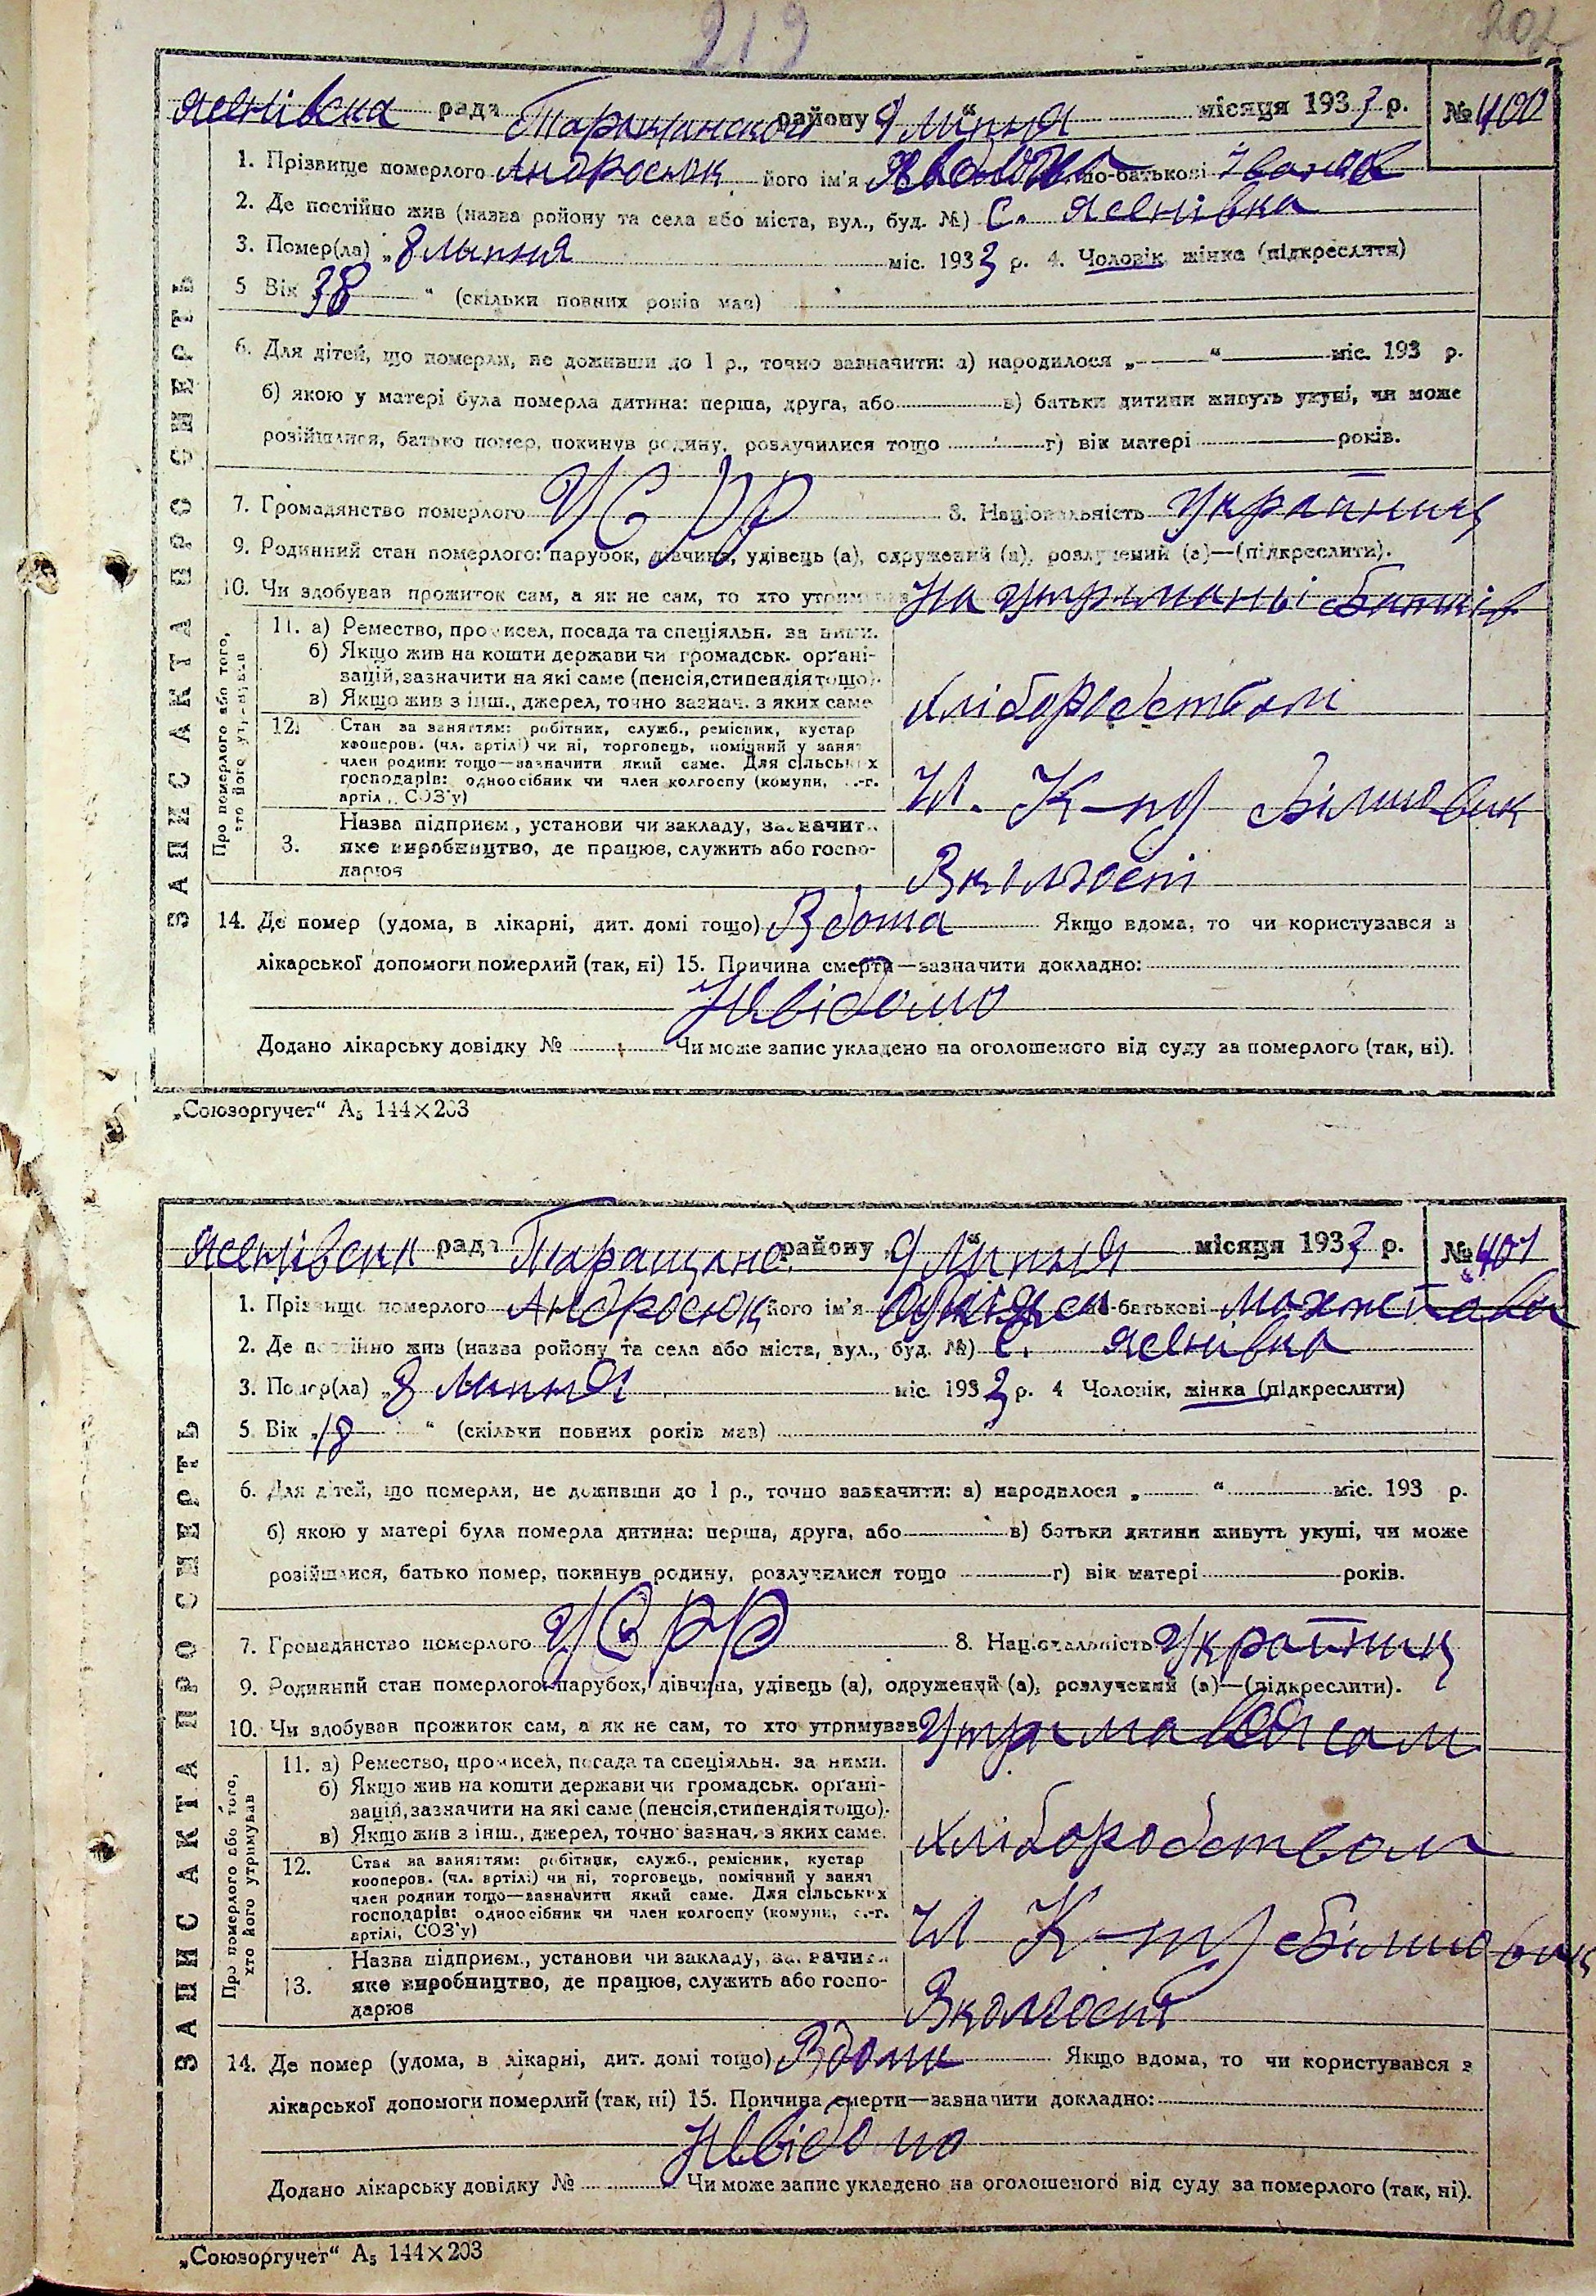 219
202
Яснівска рада Таращанського району „9 липня“ місяця 1933 р. № 400
1. Прізвище померлого Андросюк його ім'я по-батькові Іванов
2. Де постійно жив (назва району та села або міста, вул., буд. №) с. Яснівка
3. Помер(ла) „8 липня міс. 1933 р. 4. Чоловік, жінка (підкреслити)
5 Вік 38 “ (скільки повних років мав)
6. Для дітей, що померли, не доживши до 1 р., точно зазначити: а) народилося „ “ міс. 193 р.
б) якою у матері була померла дитина: перша, друга, або в) батьки дитини живуть укупі, чи може
розійшлися, батько помер, покинув родину, розлучилися тощо г) вік матері років.
7. Громадянство померлого УСРР 8. Національність Українец
9. Родинний стан померлого: парубок, дівчина, удівець (а), одружений (а), розлучений (а)—(підкреслити).
10. Чи здобував прожиток сам, а як не сам, то хто утримував На утриманьі батьків
ЗАПИС АКТА ПРО СМЕРТЬ
Про померлого або того, хто його утримував
11. а) Ремество, промисел, посада та спеціяльн. за ними.
б) Якщо жив на кошти держави чи громадськ. орґані-
зацій, зазначити на які саме (пенсія, стипендія тощо).
в) Якщо жив з інш., джерел, точно зазнач. з яких саме
хліборобством
12. Стан за заняттям: робітник, служб., ремісник, кустар
кооперов. (чл. артілі) чи ні, торговець, помічний у занят
член родини тощо—зазначити який саме. Для сільських
господарів: одноосібник чи член колгоспу (комуни, с.-г.
артіл., СОЗ'у)
Чл. К-пу Більшовик
Назва підприєм., установи чи закладу, зазначити
3. яке виробництво, де працює, служить або госпо-
дарює
В колгоспі
14. Де помер (удома, в лікарні, дит. домі тощо) Вдома Якщо вдома, то чи користувався з
лікарської допомоги померлий (так, ні) 15. Причина смерти—зазначити докладно:
Невідомо
Додано лікарську довідку № Чи може запис укладено на оголошеного від суду за померлого (так, ні).
„Союзоргучет“ А₅ 144×203
Яснівськ рада Таращанс. району „9 липня“ місяця 1933 р. № 401
1. Прізвище померлого Андросюк його ім'я по-батькові
2. Де постійно жив (назва району та села або міста, вул., буд. №) с. Яснівка
3. Помер(ла) „8 липня міс. 1933 р. 4 Чоловік, жінка (підкреслити)
5. Вік „18 “ (скільки повних років мав)
6. Для дітей, що померли, не доживши до 1 р., точно зазначити: а) народилося „ “ міс. 193 р.
б) якою у матері була померла дитина: перша, друга, або в) батьки дитини живуть укупі, чи може
розійшлися, батько помер, покинув родину, розлучилися тощо г) вік матері років.
7. Громадянство померлого УСРР 8. Національність Українец
9. Родинний стан померлого: парубок, дівчина, удівець (а), одружений (а), розлучений (а)—(підкреслити).
10. Чи здобував прожиток сам, а як не сам, то хто утримував
ЗАПИС АКТА ПРО СМЕРТЬ
Про померлого або того, хто його утримував
11. а) Ремество, промисел, посада та спеціяльн. за ними.
б) Якщо жив на кошти держави чи громадськ. орґані-
зацій, зазначити на які саме (пенсія, стипендія тощо).
в) Якщо жив з інш., джерел, точно зазнач. з яких саме.
хліборобством
12. Стан за заняттям: робітник, служб., ремісник, кустар
кооперов. (чл. артілі) чи ні, торговець, помічний у занят
член родини тощо—зазначити який саме. Для сільських
господарів: одноосібник чи член колгоспу (комуни, с.-г.
артілі, СОЗ'у)
Чл К-пу Більшовик
Назва підприєм., установи чи закладу, зазначити
13. яке виробництво, де працює, служить або госпо-
дарює
В колгоспі
14. Де помер (удома, в лікарні, дит. домі тощо) Вдома Якщо вдома, то чи користувався з
лікарської допомоги померлий (так, ні) 15. Причина смерти—зазначити докладно:
Невідомо
Додано лікарську довідку № Чи може запис укладено на оголошеного від суду за померлого (так, ні).
„Союзоргучет“ А₅ 144×203